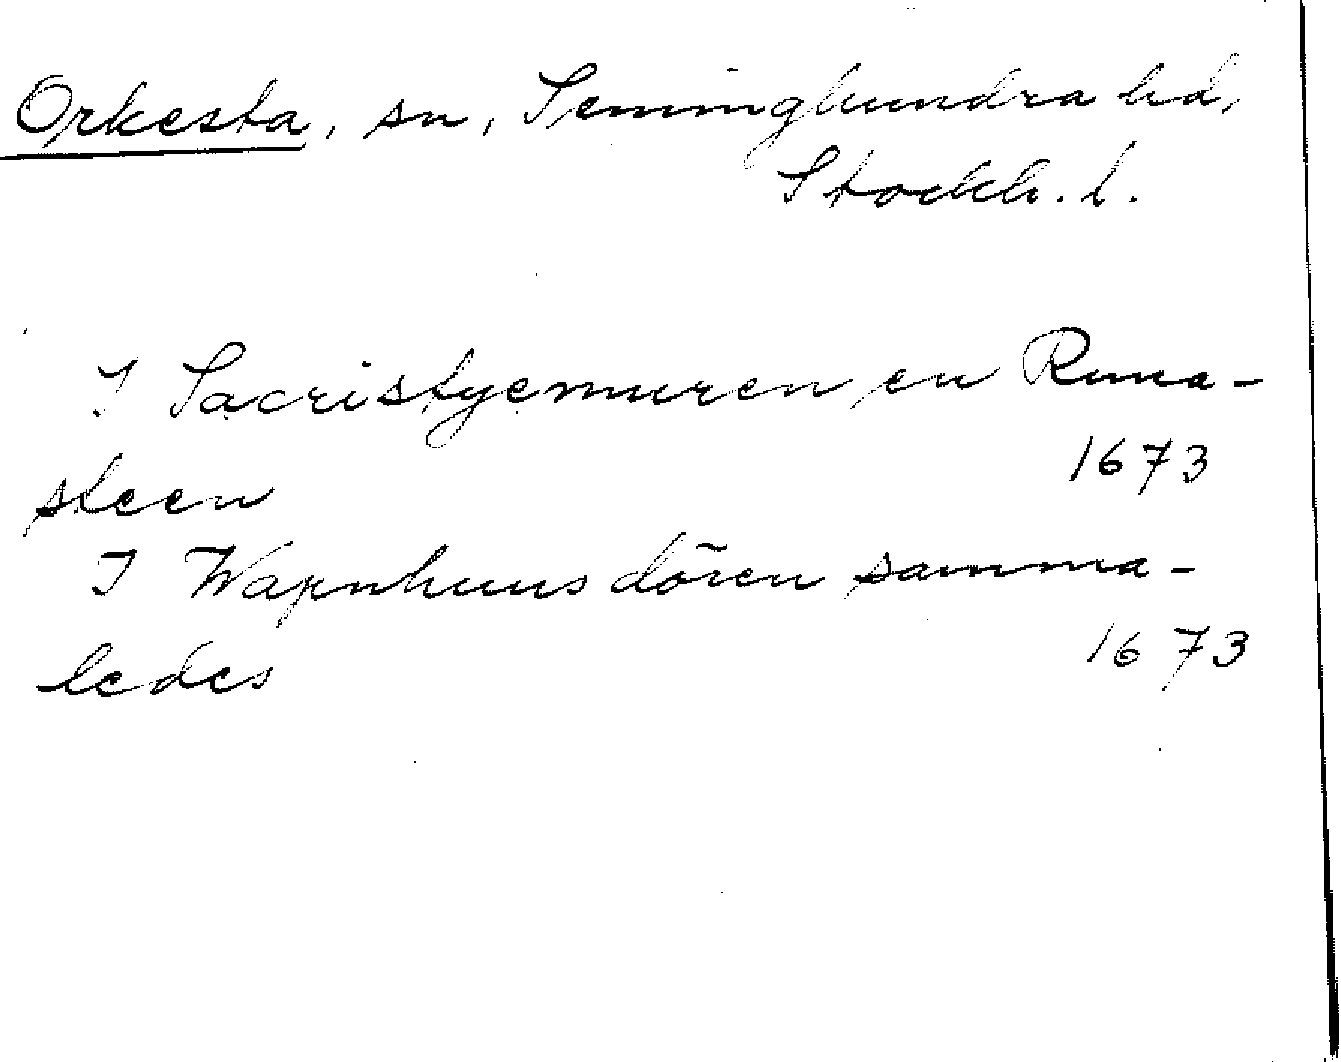 Orkesta, sn, Seminghundra hd,
Stockh. l.
I Sacristyemuren en Runa-
steen 1673
I Wapnhuus dören samma-
ledes 1673